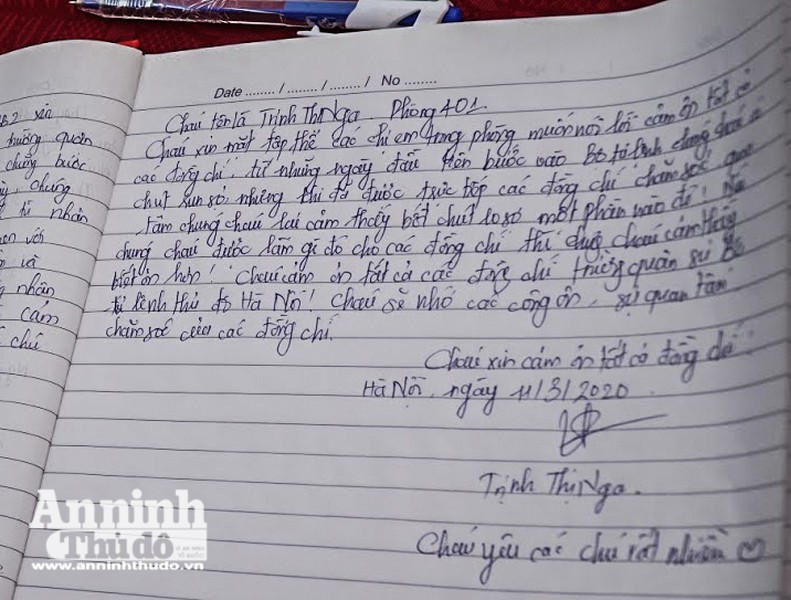 Date ........ / ........ / ........ / No ........
xin
trường quân
chúng
bước
chúng
tù nhân
với
và
nhân
cảm
chú
Cháu tên là Trịnh Thị Nga. Phòng 401.
Cháu xin mặt tập thể các chị em trong phòng muốn nói lời cảm ơn tất cả
các đồng chí, từ những ngày đầu tiên bước vào Bộ tư lệnh chúng cháu có
chút run sợ, nhưng khi đã được trực tiếp các đồng chí chăm sóc quan
tâm chúng cháu lại cảm thấy bớt chút lo sợ một phần nào đó!
chúng cháu được làm gì đó cho các đồng chí thì chúng cháu cảm thấy
biết ơn hơn! Cháu cảm ơn tất cả các đồng chí trường quân sự Bộ
tư lệnh thủ đô Hà Nội! Cháu sẽ nhớ các công ơn, sự quan tâm
chăm sóc của các đồng chí.
Cháu xin cảm ơn tất cả đồng chí
Hà Nội, ngày 11/3/2020
Trịnh Thị Nga.
Cháu yêu các chú rất nhiều ♡
An ninh
Thủ đô
www.anninhthudo.vn